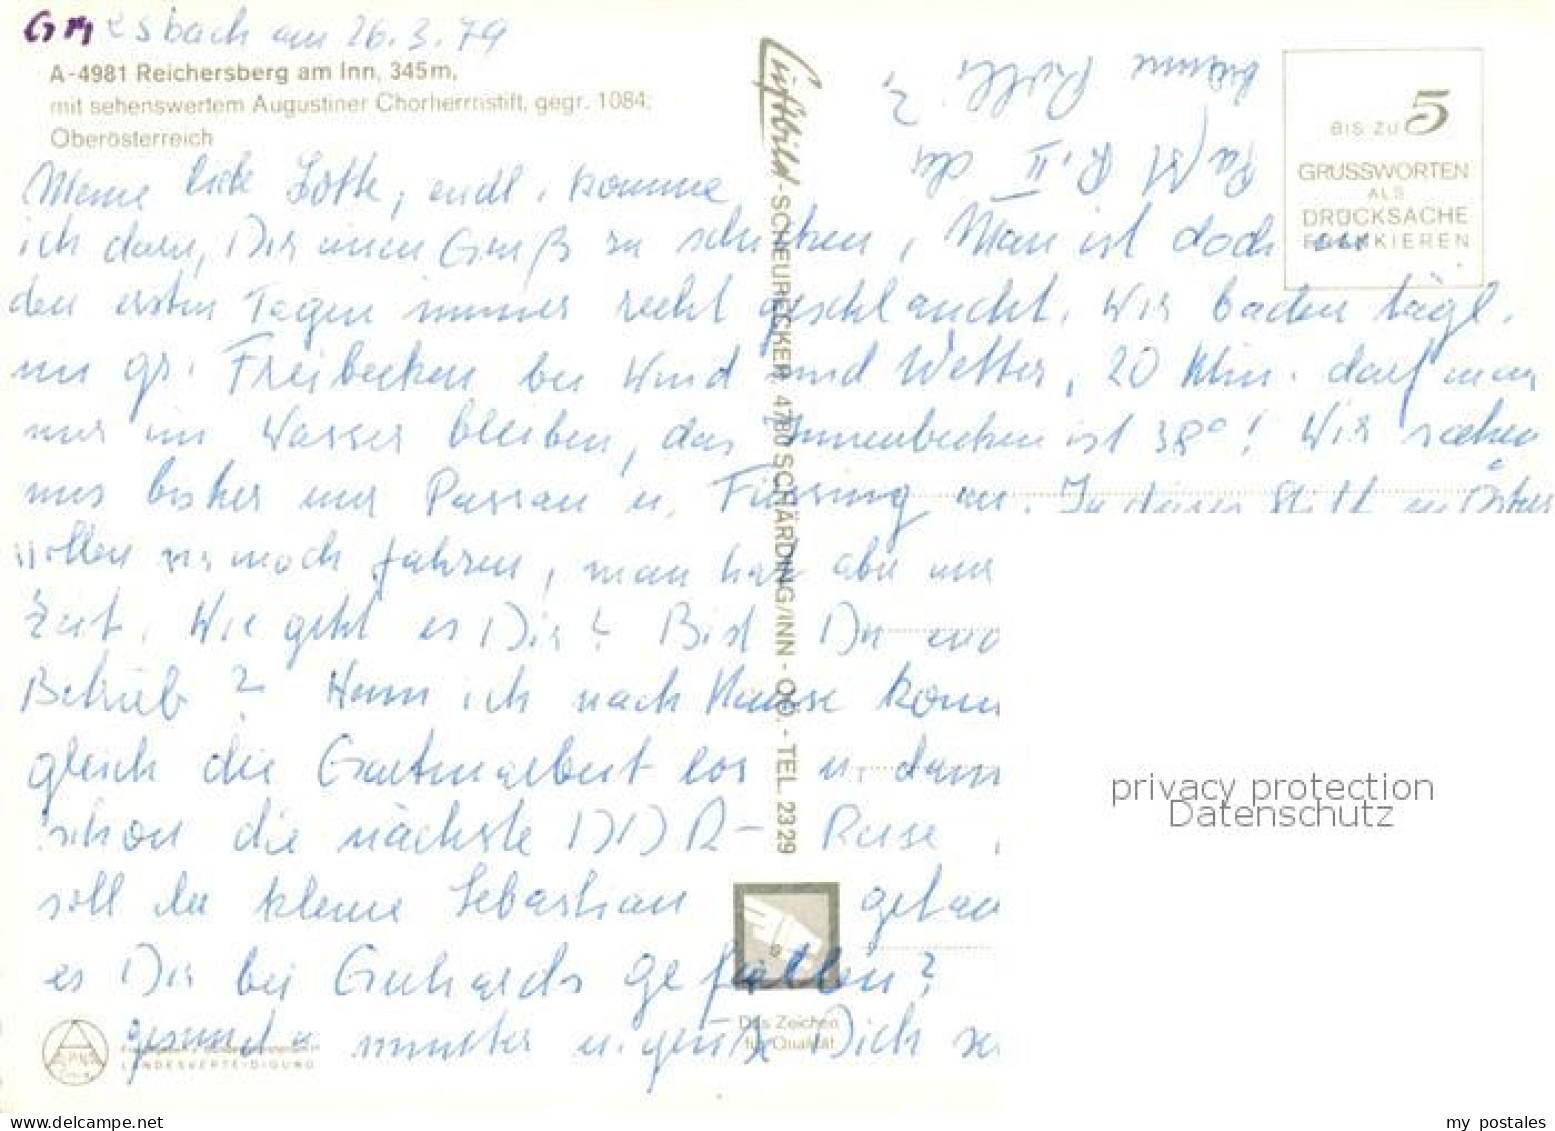 Griesbach am 26.3.79
A-4981 Reichersberg am Inn, 345m,
mit sehenswertem Augustiner Chorherrnstift, gegr. 1084;
Oberösterreich
Meine liebe Lotte, endl. komme
ich dazu, Dir einen Gruß zu schicken, Man ist doch an
den ersten Tagen immer recht geschlaucht. Wir baden tägl.
im gr. Freibecken bei Wind und Wetter, 20 Min. darf man
nur im Wasser bleiben, das Innenbecken ist 38°! Wir sahen
uns bisher nur Passau u. Füssing an. In dieses Stift in Öster
wollen wir noch fahren, man hat aber nur
Zeit. Wie geht es Dir? Bist Du
Betrieb? Wenn ich nach Hause komm
gleich die Gartenarbeit los u. dann
schon die nächste DDR- Reise
soll der kleine Sebastian getau
es Dir bei Gerhards gefallen?
gesund u munter u. grüße Dich
Luftbild-SCHEURECKER, 4780 SCHÄRDING/INN - OÖ. - TEL. 2329
BIS ZU 5
GRUSSWORTEN
ALS
DRUCKSACHE
FRANKIEREN
ALPINA
LANDESVERTEIDIGUNG
Das Zeichen
für Qualität
privacy protection
Datenschutz
my postales